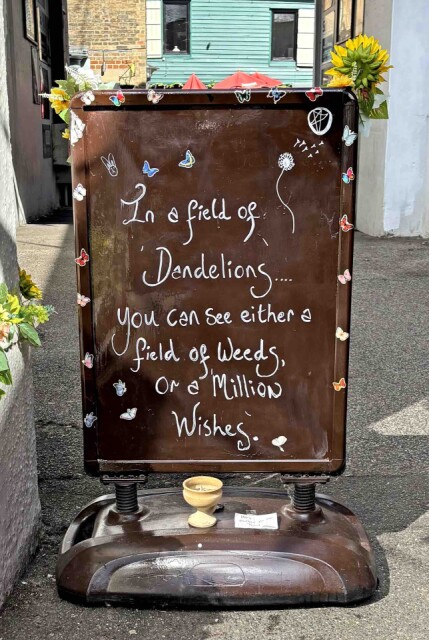 In a field of
Dandelions....
you can see either a
field of Weeds,
Or a Million
Wishes.